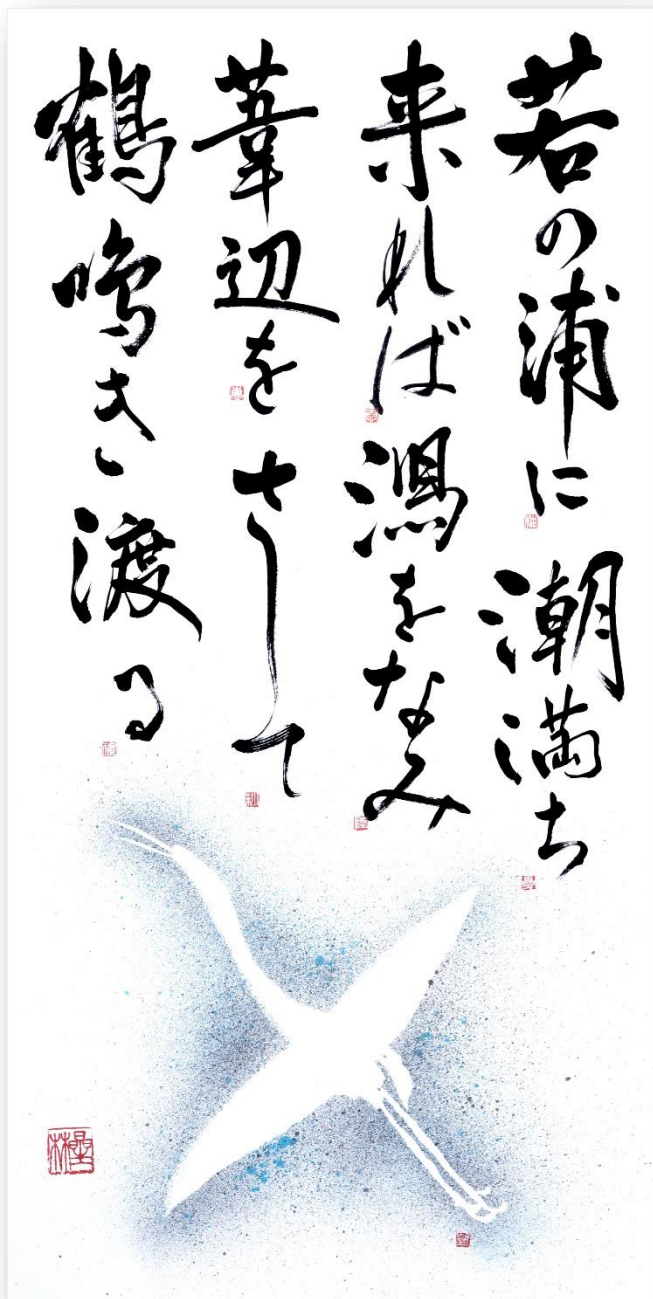 若の浦に潮満ち
来れば潟をなみ
葦辺をさして
鶴鳴き渡る